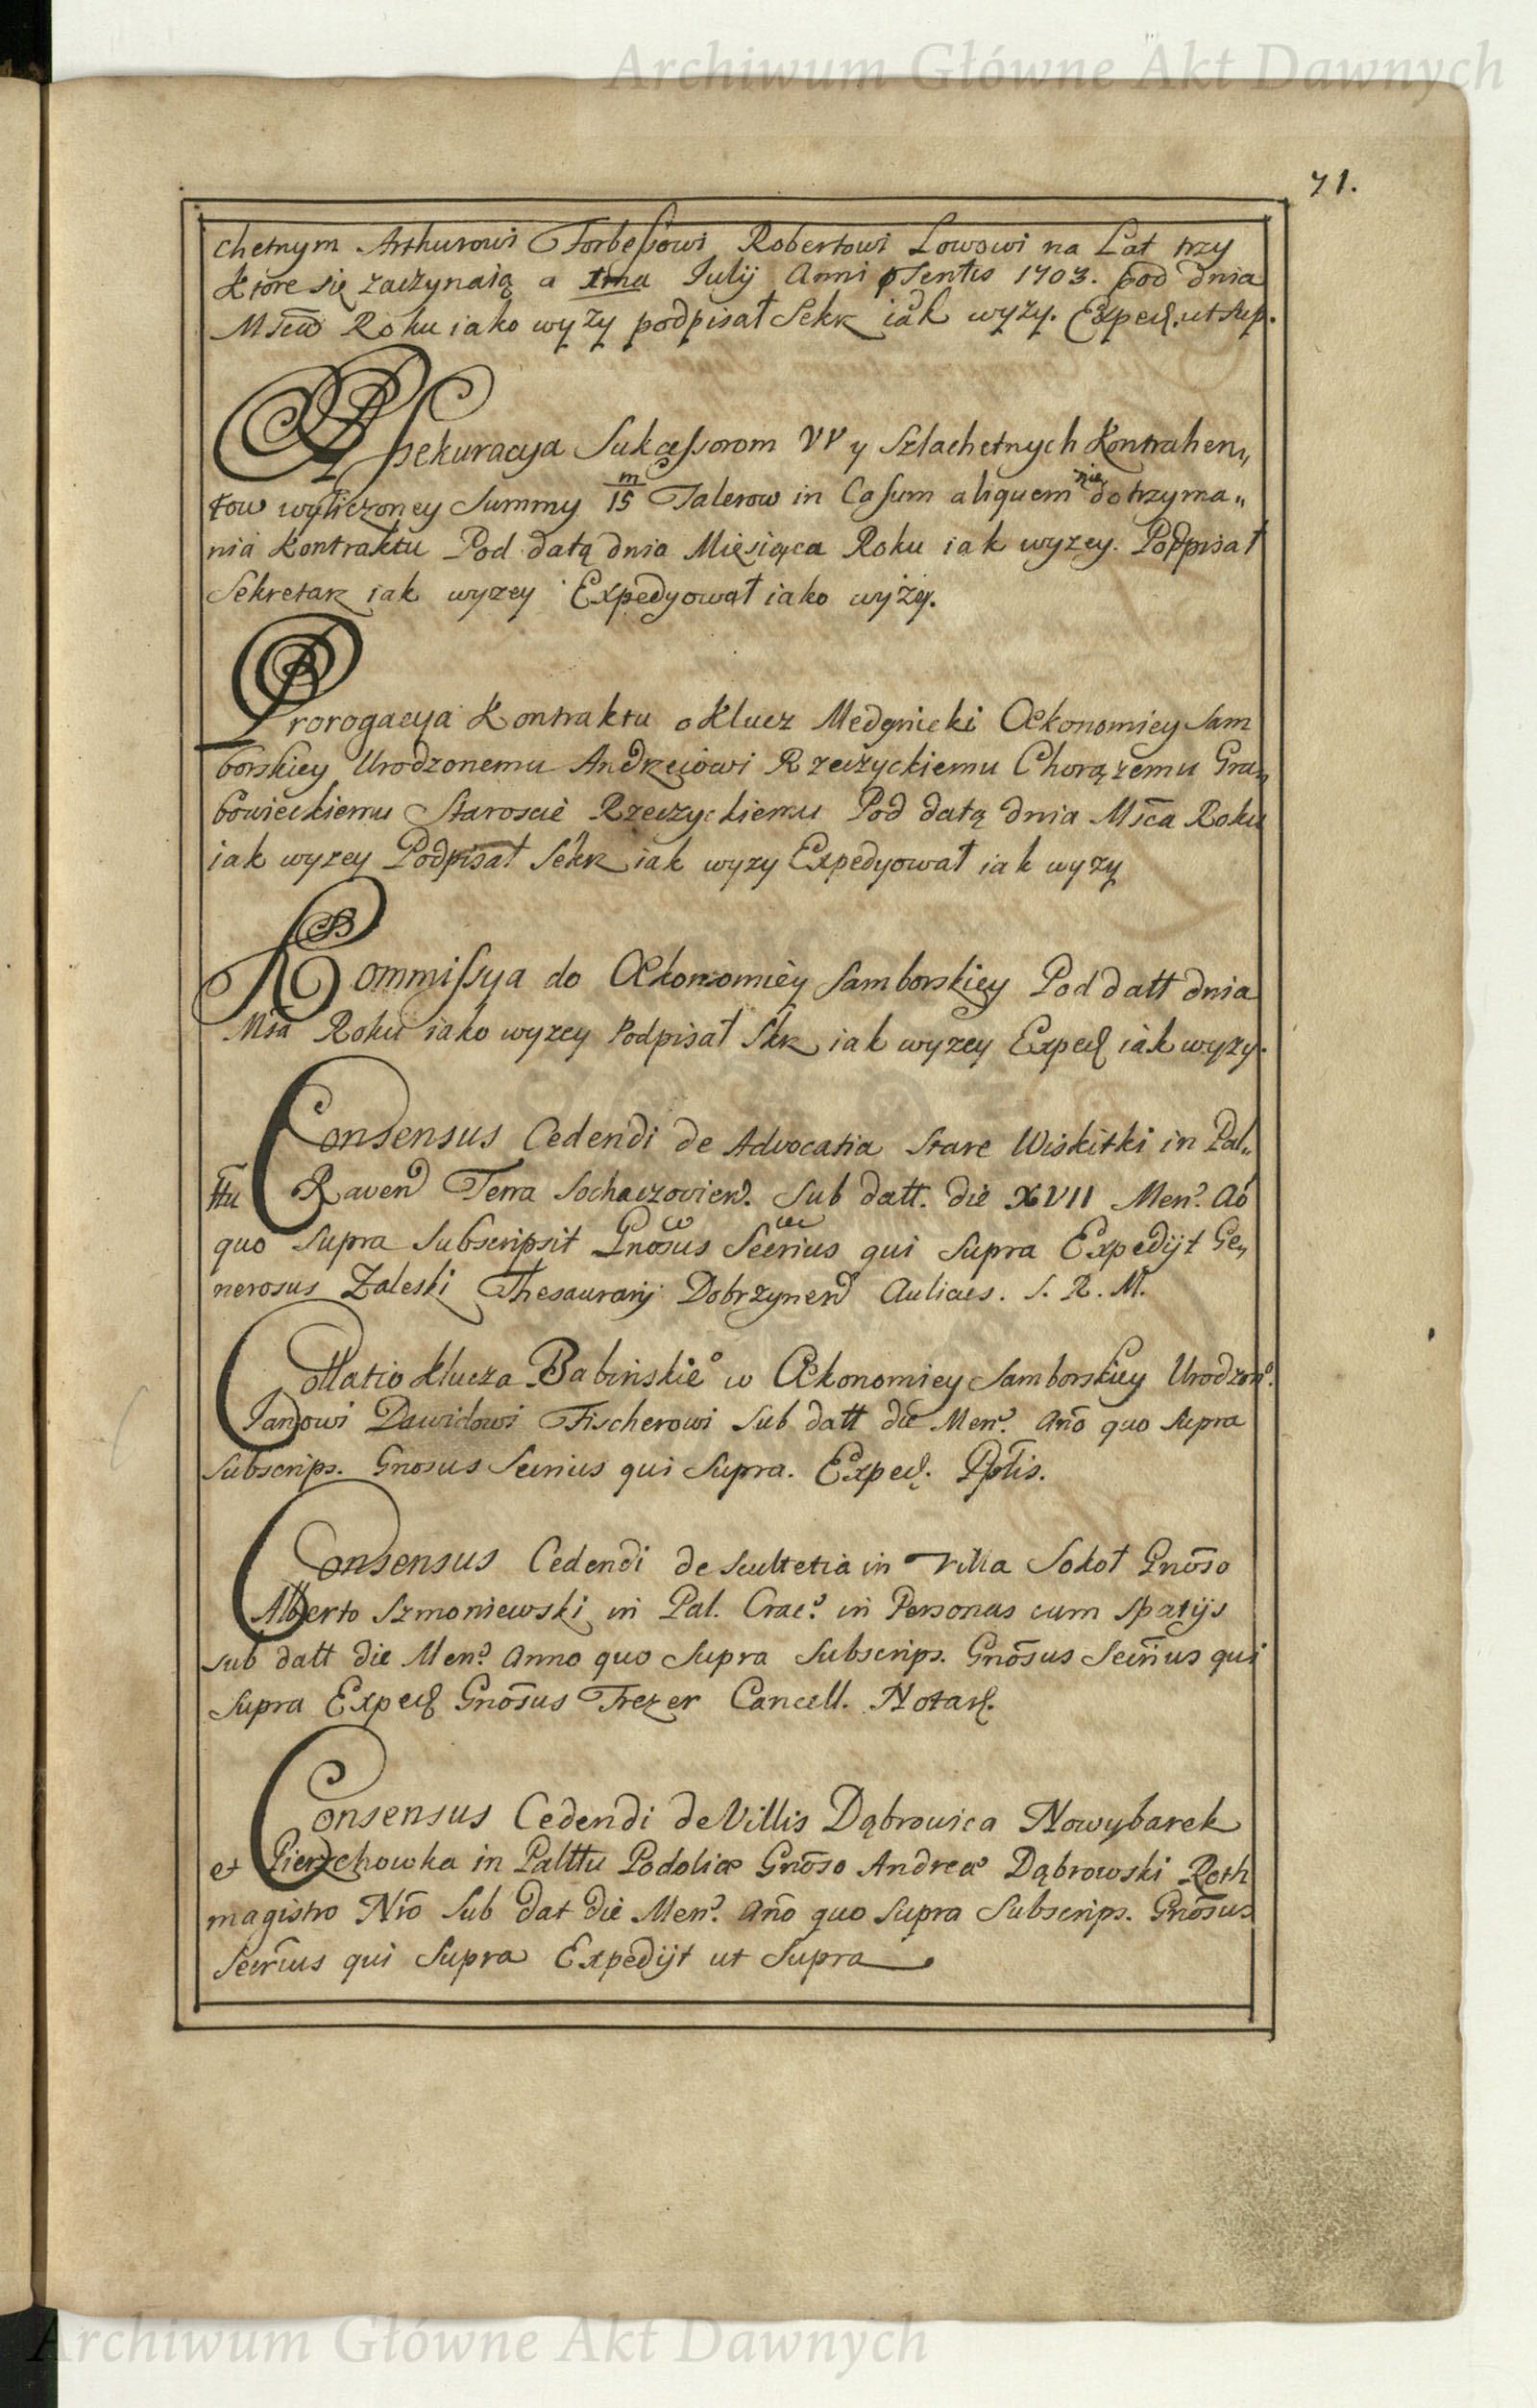 Archiwum Główne Akt Dawnych
71.
chetnym Arthurowi Forbeſsowi Robertowi Lowowi na Lat trzy
ktore się zaczynaią a 1ma Julij Anni pſentis 1703. pod dnia
Mſca Roku iako wyzy podpisał Sekr iak wyzy. Exped. ut sup.
Aſsekuracya Sukceſsorom UU y Szlachetnych Kontrahen„
tow wyliczoney Summy m/15 Talerow in Casum aliquem nie dotrzyma„
nia Kontraktu Pod datą dnia Miesiąca Roku iak wyzey. Podpisał
Sekretarz iak wyzey Expedyował iako wyży.
Prorogacya Kontraktu o Klucz Medynicki Œkonomiey Sam
borskiey Urodzonemu Andrzeiowi Rzeczyckiemu Chorązemu Gra„
bowieckiemu Staroscie Rzeczyckiemu Pod datą dnia Mſca Roku
iak wyzey Podpisał Sekr iak wyzy Expedyował iak wyzy
Kommiſsya do Œkonomiey Samborskiey Pod datt dnia
Msa Roku iako wyzey Podpisał Skr iak wyzey Exped iak wyzy.
Consensus Cedendi de Advocatia Stare Wiskitki in Pal„
ttu Raven Terra Sochaczovien. Sub datt. die XVII Men. Ao
quo Supra Subscripsit Gnosus Secrius qui Supra Expedijt Ge„
nerosus Zaleski Thesaurarij Dobrzynen Aulicus. S. R. M.
Collatio Klucza Babinskieo w Œkonomiey Samborskiey Urodzono.
Janowi Dawidowi Fischerowi Sub datt die Men. Ano quo Supra
Subscrips. Gnosus Secrius qui Supra. Exped. Pptis.
Consensus Cedendi de Scultetia in Villa Sokoł Gnoso
Alberto Szmoniewski in Pal. Crac. in Personas cum spatijs
sub datt die Men. Anno quo Supra Subscrips. Gnosus Secrius qui
Supra Exped Gnosus Trezer Cancell. Notar.
Consensus Cedendi de Villis Dąbrowica Nowybarek
et Pierzchowka in Palttu Podoliæ Gnoso Andreæ Dąbrowski Roth
magistro Nro Sub dat die Men. Ano quo Supra Subscrips. Gnosus
Secrius qui Supra Expedijt ut Supra.
Archiwum Główne Akt Dawnych